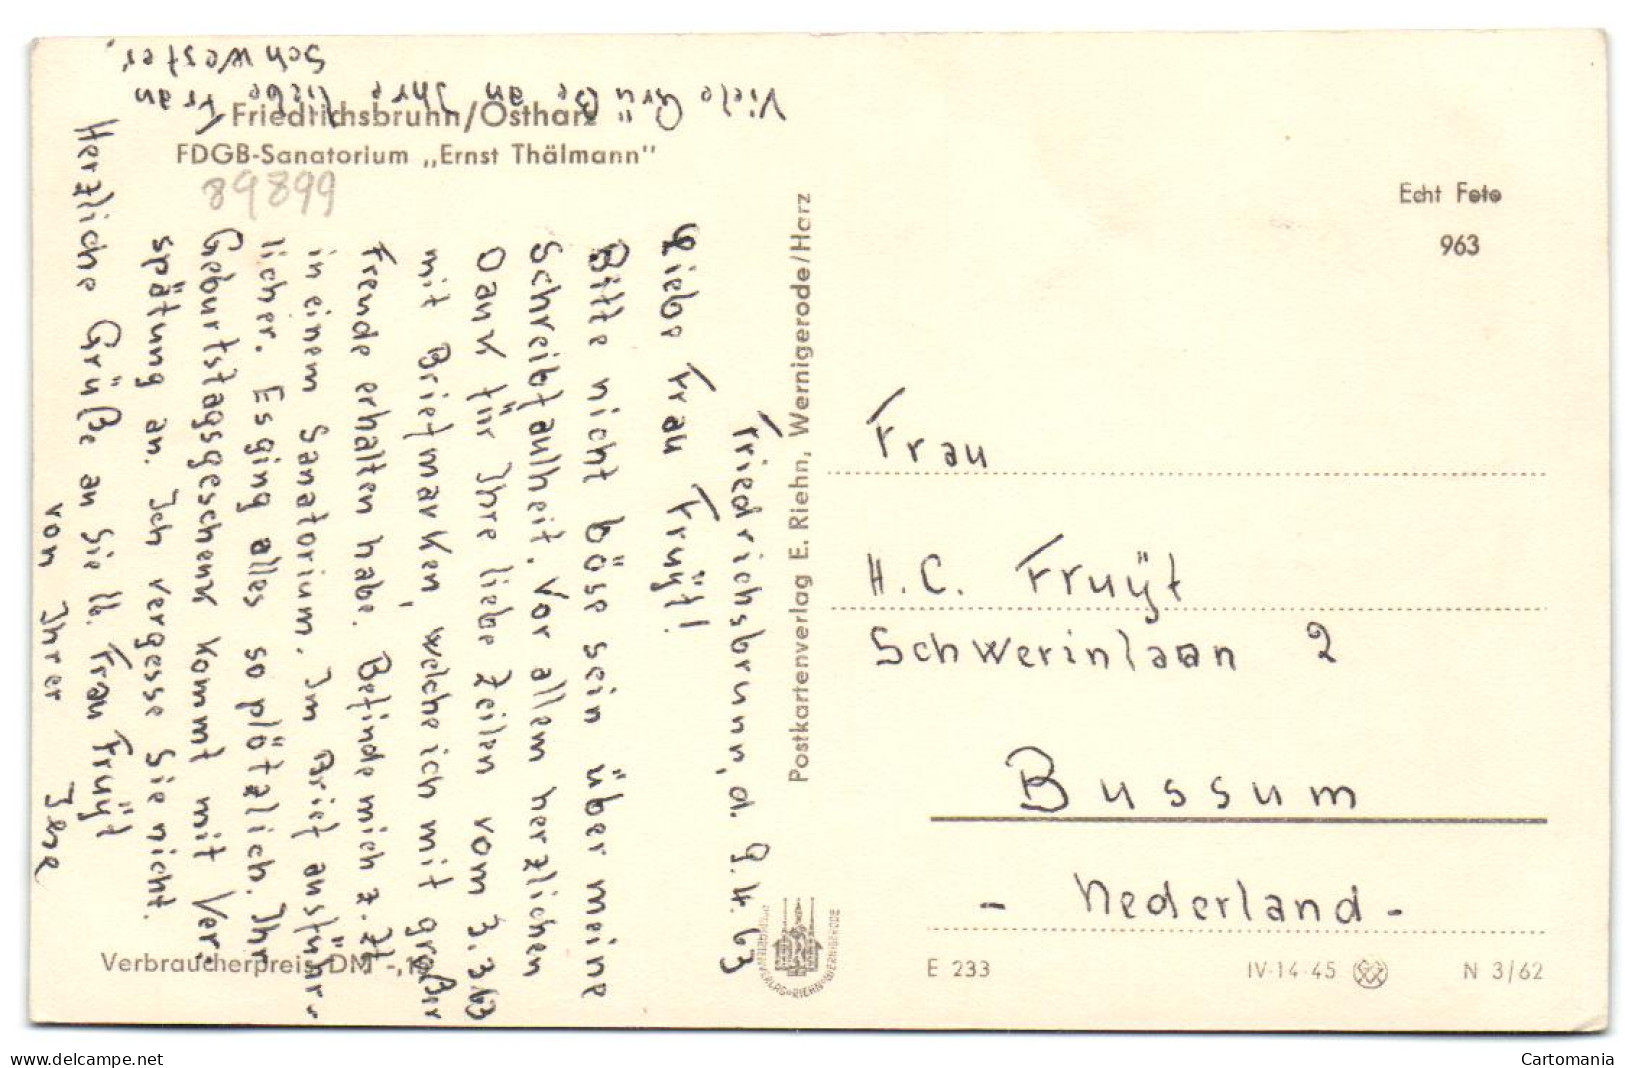 Friedrichsbrunn/Ostharz
FDGB-Sanatorium „Ernst Thälmann"
89899
Friedrichsbrunn, d. 9.4.63
Liebe Frau Fruÿt!
Bitte nicht böse sein über meine
Schreibfaulheit. Vor allem herzlichen
Dank für Ihre liebe Zeilen vom 3.3.63
mit Briefmarken, welche ich mit großer
Freude erhalten habe. Befinde mich z. Zt
in einem Sanatorium. Im Brief ausführ-
licher. Es ging alles so plötzlich. Ihr
Geburtstagsgeschenk kommt mit Ver-
spätung an. Ich vergesse Sie nicht.
Herzliche Grüße an Sie lb. Frau Fruÿt
von Ihrer Irene
Viele Grüße an Ihre liebe Frau
Schwester.
Verbraucherpreis DM -,19
Postkartenverlag E. Riehn, Wernigerode/Harz
VERLAG·RIEHN·WERNIGERODE
Echt Foto
963
Frau
H. C. Fruÿt
Schwerinlaan 2
Bussum
- Nederland -
E 233
IV-14-45
N 3/62
www.delcampe.net
Cartomania